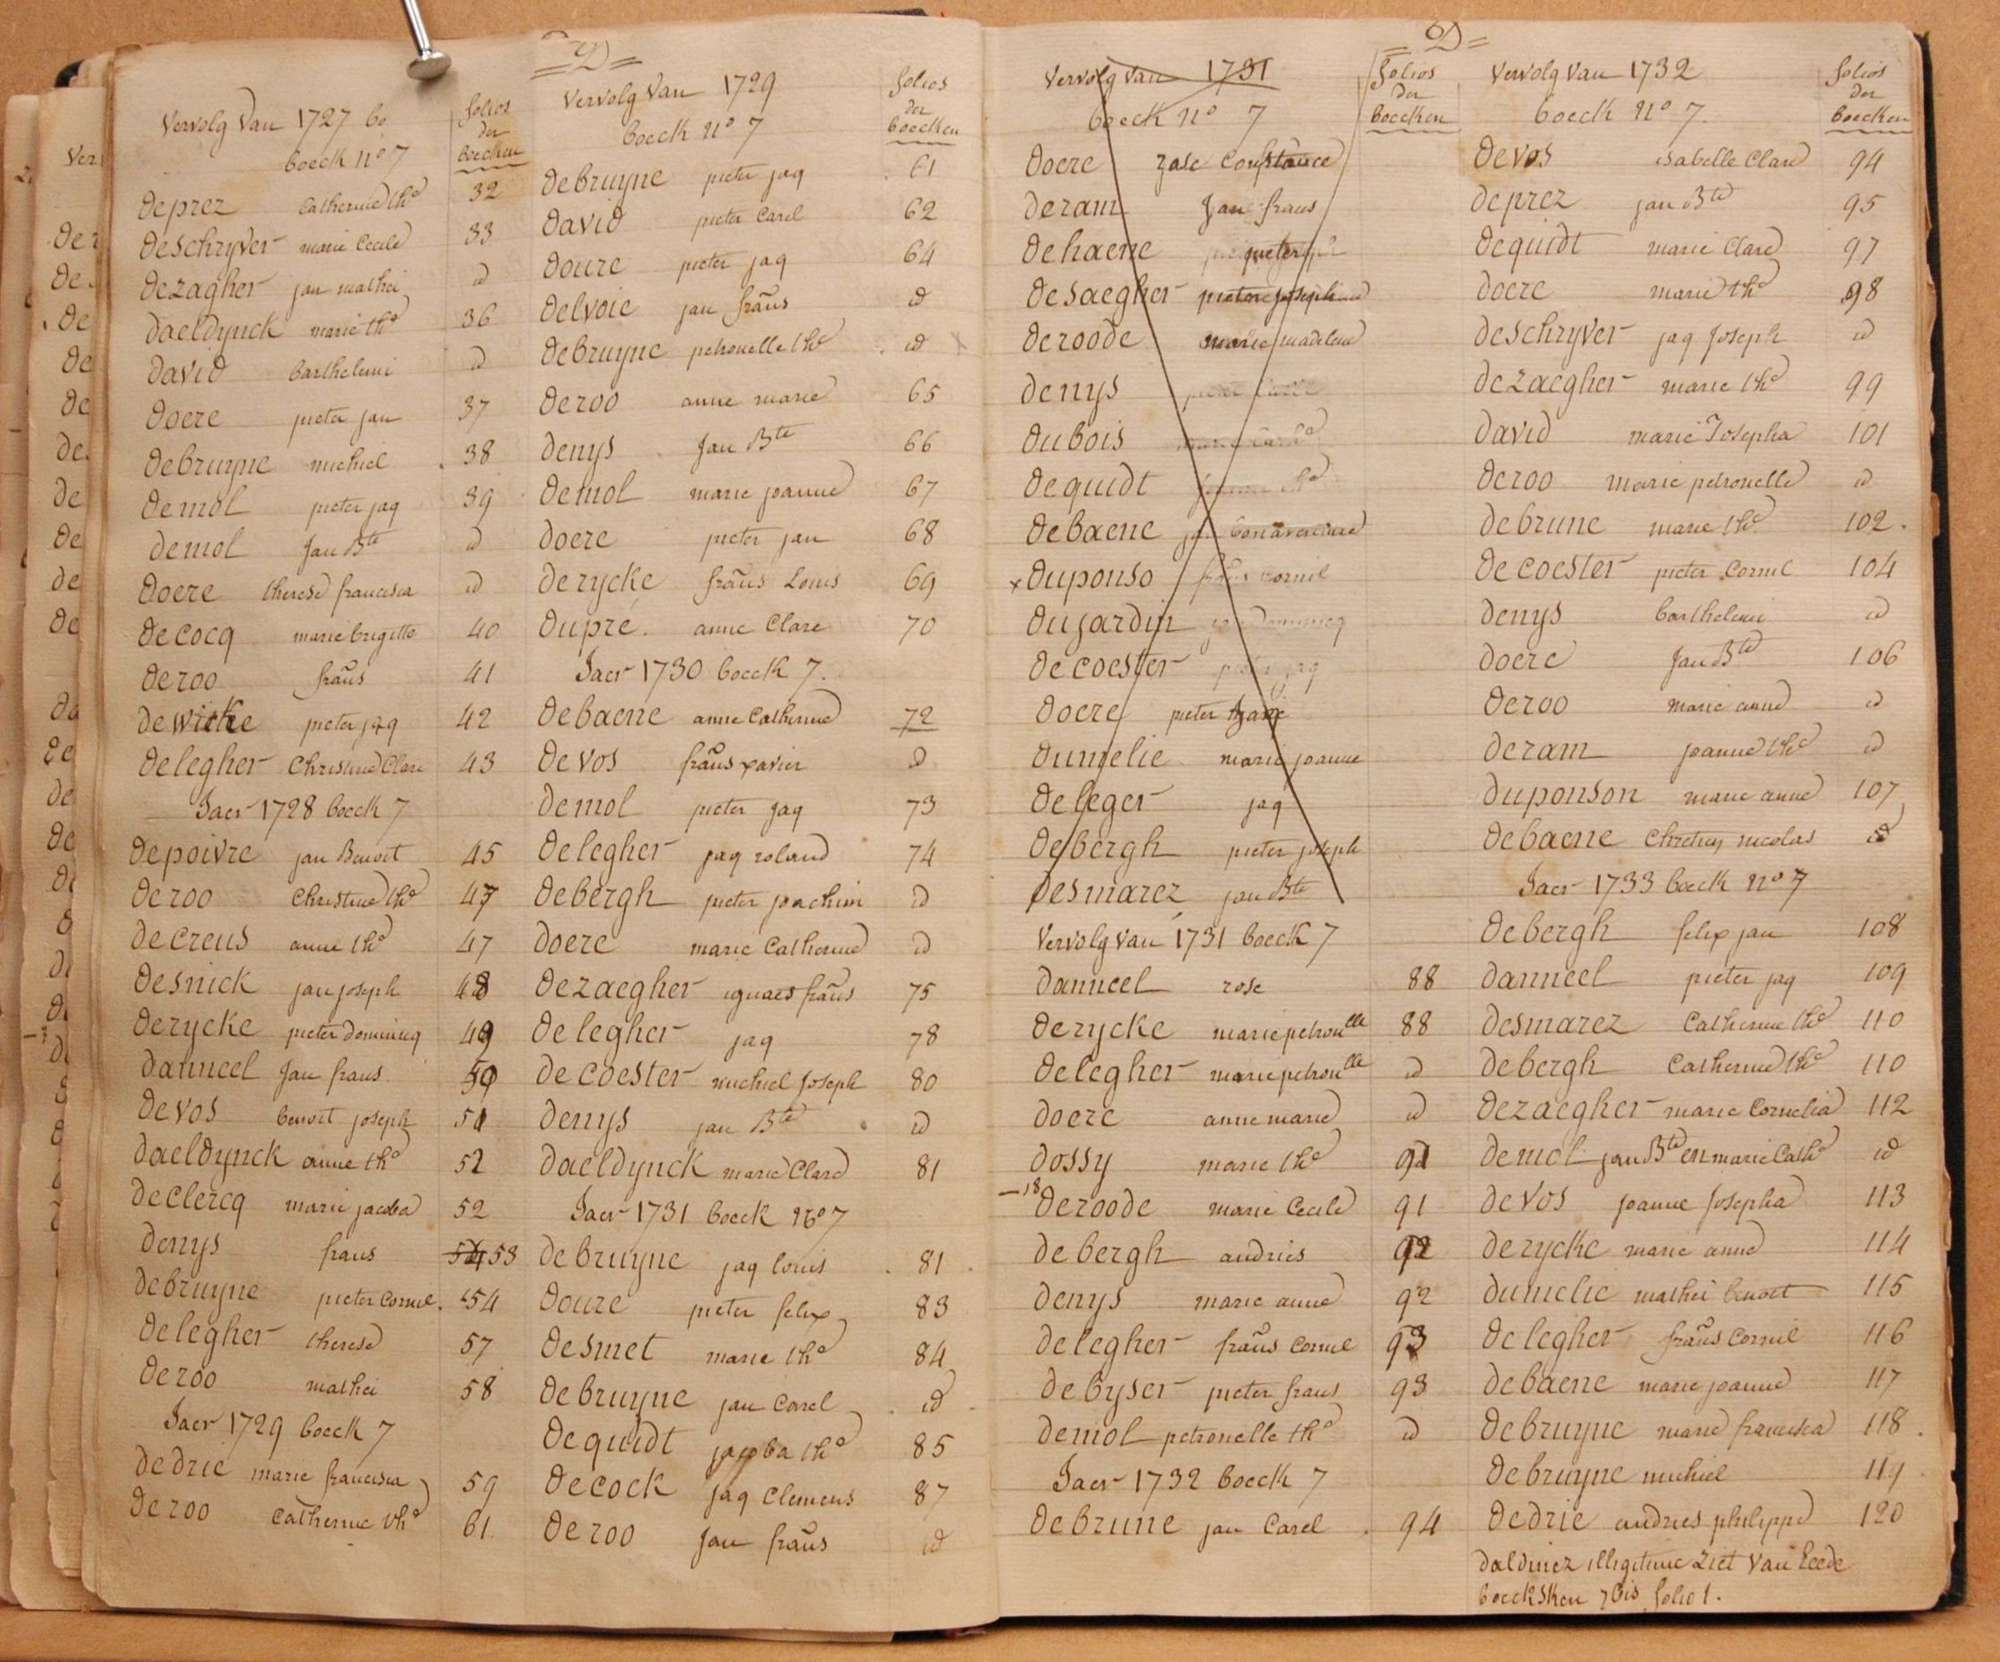 =D=
Vervolg Van 1727 bo
boeck No 7
folios
der
boecken
deprez Catherine the 32
deschryver marie Cecile 33
dezagher jan mathei id
daeldynck marie the 36
david barthelemi id
doere pieter jan 37
debruyne michiel 38
demol pieter jaq 39
demol Jan Bte id
doere therese francisca id
decocq marie brigitte 40
deroo frans 41
dewitke pieter jaq 42
delegher Christine Clare 43
Jaer 1728 boeck 7
depoivre jan Benoit 45
deroo Christine the 47
decreus anne the 47
desnick jan joseph 48
derycke pieter dominicq 49
danneel Jan frans 50
devos benoit joseph 51
daeldynck anne the 52
declercq marie jacoba 52
denys frans 54 53
debruyne pieter Cornil 54
delegher therese 57
deroo mathei 58
Jaer 1729 boeck 7
dedrie marie francisca 59
deroo Catherine the 61
Vervolg Van 1729
boeck No 7
folios
der
boecken
debruyne pieter jaq 61
david pieter Carel 62
doure pieter jaq 64
delvoie jan frans id
debruyne petronelle the id
deroo anne marie 65
denys Jan Bte 66
demol marie joanne 67
doere pieter jan 68
derycke frans Louis 69
dupré anne Clare 70
Jaer 1730 boeck 7.
debaene anne Catherine 72
devos frans xavier id
demol pieter Jaq 73
delegher jaq roland 74
debergh pieter joachim id
doere marie Catherine id
dezaegher ignaes frans 75
delegher jaq 78
decoester michiel Joseph 80
denys jan Bte id
daeldynck marie Clare 81
Jaer 1731 boeck No 7
debruyne jaq louis 81
doure pieter felix 83
desmet marie the 84
debruyne jan Carel id
dequidt jacoba the 85
decock jaq Clemens 87
deroo Jan frans id
=D=
Vervolg Van 1731
boeck No 7
folios
der
boecken
doere rose Constance
deram Jan frans
dehaene pieter
desaegher pieter joseph
deroode marie madelene
denys
dubois
dequidt
debaene bonaventure
x duponso frans cornil
dujardin dominicq
decoester pieter jaq
doere pieter
dumelie marie joanne
deleger jaq
debergh pieter joseph
desmarez jan Bte
Vervolg Van 1731 boeck 7
danneel rose 88
derycke marie petronlle 88
delegher marie petronlle id
doere anne marie id
dossy marie the 91
deroode marie Cecile 91
debergh andries 92
denys marie anne 92
delegher frans Cornil 93
debyser pieter frans 93
demol petronelle the id
Jaer 1732 boeck 7
debrune jan Carel 94
Vervolg Van 1732
boeck No 7.
folios
der
boecken
devos isabelle Clare 94
deprez jan Bte 95
dequidt marie Clare 97
doere marie the 98
deschryver jaq Joseph id
dezaegher marie the 99
david marie Josepha 101
deroo marie petronelle id
debrune marie the 102
decoester pieter Cornil 104
denys barthelemi id
doere Jan Bte 106
deroo marie anne id
deram joanne the id
duponson marie anne 107
debaene Chretien nicolas id
Jaer 1733 boeck No 7
debergh felix jan 108
danneel pieter jaq 109
desmarez Catherine the 110
debergh Catherine the 110
dezaegher marie Cornelia 112
demol jan Bte en marie Cathe id
devos joanne Josepha 113
derycke marie anne 114
dumelie mathei benoit 115
delegher frans Cornil 116
debaene marie joanne 117
debruyne marie francisca 118
debruyne michiel 119
dedrie andries philippe 120
daldincz illigitime Ziet Van Eede
boecksken 7 bis folio 1.